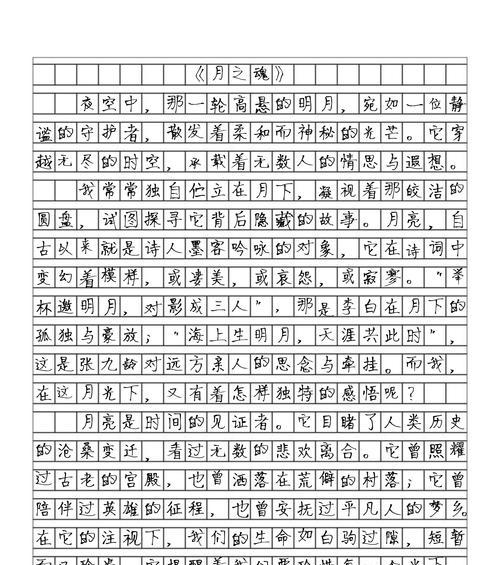 《月之魂》
夜空中，那一轮高悬的明月，宛如一位静
谧的守护者，散发着柔和而神秘的光芒。它穿
越无尽的时空，承载着无数人的情思与遐想。
我常常独自伫立在月下，凝视着那皎洁的
圆盘，试图探寻它背后隐藏的故事。月亮，自
古以来就是诗人墨客吟咏的对象，它在诗词中
变幻着模样，或凄美，或哀怨，或寂寥。“举
杯邀明月，对影成三人”，那是李白在月下的
孤独与豪放；“海上生明月，天涯共此时”，
这是张九龄对远方亲人的思念与牵挂。而我，
在这月光下，又有着怎样独特的感悟呢？
月亮是时间的见证者。它目睹了人类历史
的沧桑变迁，看过无数的悲欢离合。它曾照耀
过古老的宫殿，也曾洒落在荒僻的村落；它曾
陪伴过英雄的征程，也曾安抚过平凡人的梦乡。
在它的注视下，我们的生命如白驹过隙，短暂